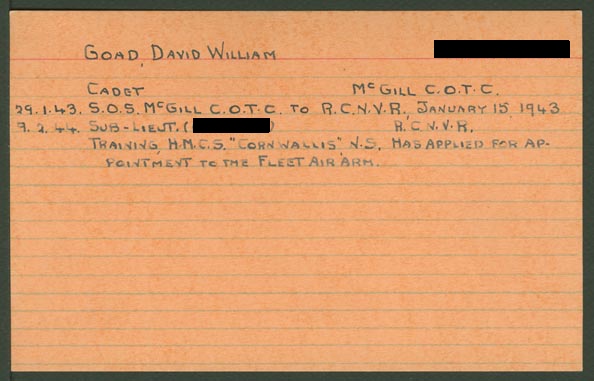 GOAD, DAVID WILLIAM
CADET McGILL C.O.T.C.
29.1.43. S.O.S. McGILL C.O.T.C. TO R.C.N.V.R., JANUARY 15, 1943
9.2.44. SUB-LIEUT. ( ) R.C.N.V.R.
TRAINING, H.M.C.S. "CORNWALLIS", N.S. HAS APPLIED FOR AP-
POINTMENT TO THE FLEET AIR ARM.